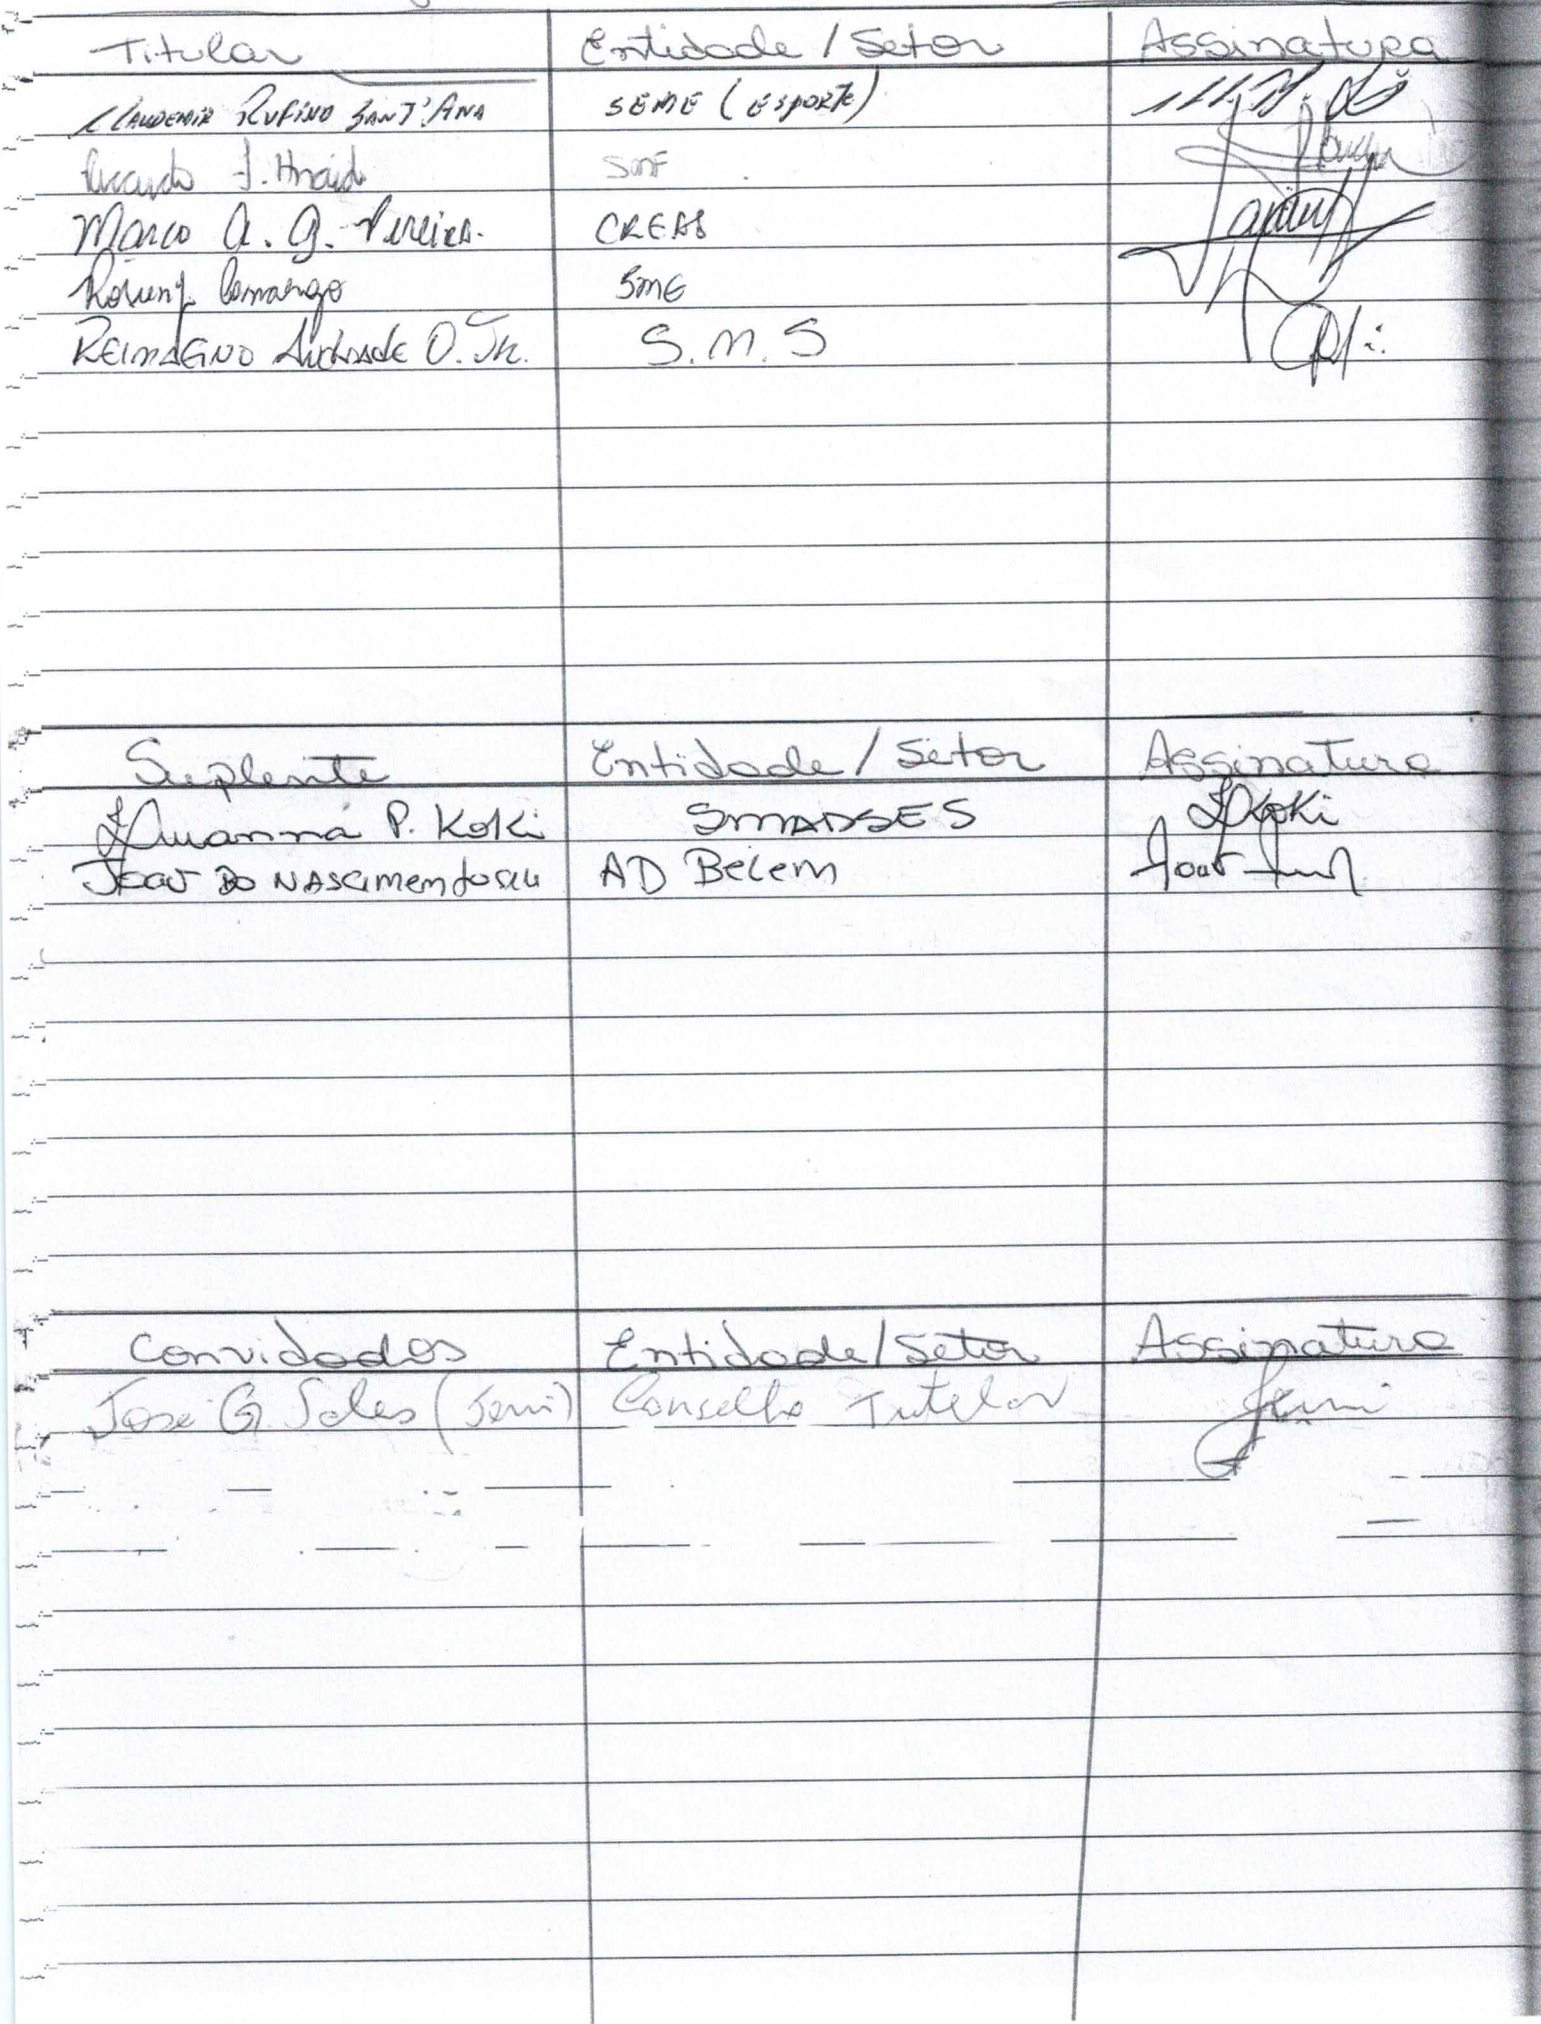 Titular Entidade / Setor Assinatura
Claudemir Rufino Sant'Ana SEME (Esporte)
Ricardo J. SMF
Marco A. G. Pereira. CREAS
Roseny Camargo SME
Reimagno Andrade O. Jr. S.M.S
Suplente Entidade / Setor Assinatura
Luanna P. Koki SMADSES LKoki
Joao do Nascimento AD Belem Joao
Convidados Entidade/Setor Assinatura
José G. Sales (Jemi) Conselho Tutelar Jemi